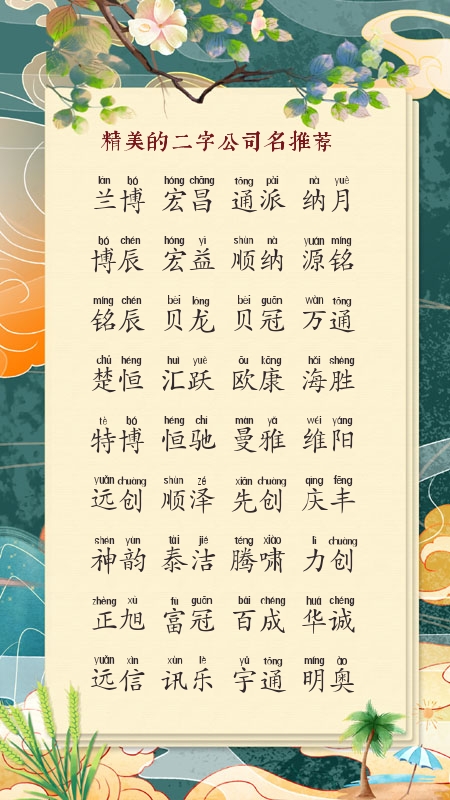 精美的二字公司名推荐
lán bó hóng chāng tōng pài nà yuè
兰博 宏昌 通派 纳月
bó chén hóng yì shùn nà yuán míng
博辰 宏益 顺纳 源铭
míng chén bèi lóng bèi guān wàn tōng
铭辰 贝龙 贝冠 万通
chǔ héng huì yuè ōu kāng hǎi shèng
楚恒 汇跃 欧康 海胜
tè bó héng chí màn yǎ wéi yáng
特博 恒驰 曼雅 维阳
yuǎn chuàng shùn zé xiān chuàng qìng fēng
远创 顺泽 先创 庆丰
shén yùn tài jié téng xiào lì chuàng
神韵 泰洁 腾啸 力创
zhèng xù fù guān bǎi chéng huá chéng
正旭 富冠 百成 华诚
yuǎn xìn xùn lè yǔ tōng míng ào
远信 讯乐 宇通 明奥